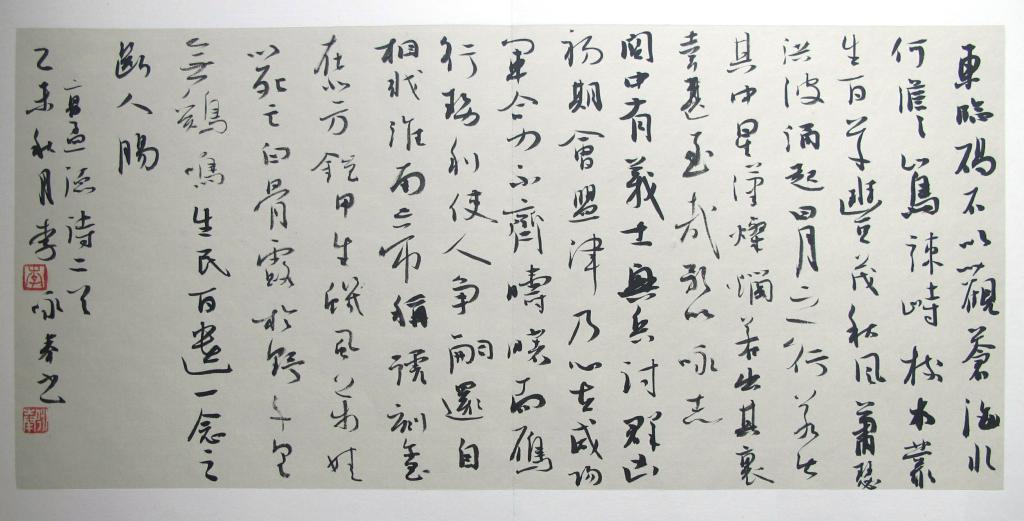 東臨碣石以觀蒼海水
何澹々山島竦峙樹木叢
生百草豐茂秋風蕭瑟
洪波涌起日月之行若出
其中星漢燦爛若出其裏
幸甚至哉歌以咏志
関中有義士興兵討群凶
初期會盟津乃心在咸陽
軍合力不齊躊躇而雁
行勢利使人爭嗣還自
相戕淮南稱號刻璽
在北方鎧甲生蟣虱萬姓
以死亡白骨露於野千里
無鷄鳴生民百遺一念之
斷人腸
曹孟德詩二首
乙未秋月李咏春書